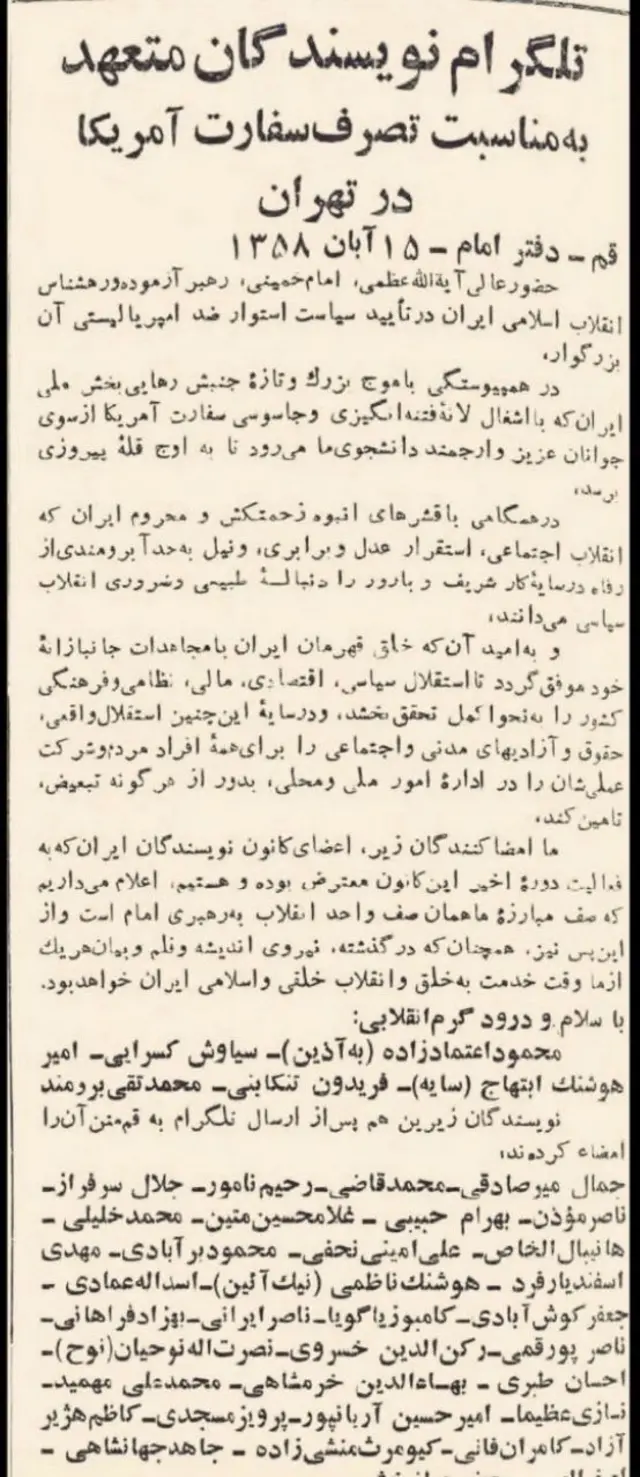 تلگرام نویسندگان متعهد
به‌مناسبت تصرف سفارت آمریکا
در تهران
قم ـ دفتر امام ـ ۱۵ آبان ۱۳۵۸
حضور عالی آیةالله عظمی، امام خمینی، رهبر آزموده و رهشناس
انقلاب اسلامی ایران در تأیید سیاست استوار ضد امپریالیستی آن
بزرگوار،
در همپیوستگی با موج بزرگ و تازهٔ جنبش رهایی‌بخش ملی
ایران که با اشغال لانهٔ فتنه‌انگیزی و جاسوسی سفارت آمریکا از سوی
جوانان عزیز و ارجمند دانشجوی ما می‌رود تا به اوج قلهٔ پیروزی
برسد،
در همگامی با قشرهای انبوه زحمتکش و محروم ایران که
انقلاب اجتماعی، استقرار عدل و برابری، و نیل به حد آبرومندی از
رفاه در سایهٔ کار شریف و بارور را دنبالـهٔ طبیعی و ضروری انقلاب
سیاسی می‌دانند،
و به امید آن که خلق قهرمان ایران با مجاهدات جانبازانهٔ
خود موفق گردد تا استقلال سیاسی، اقتصادی، مالی، نظامی و فرهنگی
کشور را به نحو اکمل تحقق بخشد، و در سایهٔ این چنین استقلال واقعی،
حقوق و آزادیهای مدنی و اجتماعی را برای همهٔ افراد مردم و شرکت
عملی‌شان را در ادارهٔ امور ملی و محلی، بدور از هر گونه تبعیض،
تامین کند،
ما امضا کنندگان زیر، اعضای کانون نویسندگان ایران که به
فعالیت دورهٔ اخیر این کانون معترض بوده و هستیم، اعلام می‌داریم
که صف مبارزهٔ ما همان صف واحد انقلاب به رهبری امام است و از
این پس نیز، همچنان که در گذشته، نیروی اندیشه و قلم و بیان هر یک
از ما وقت خدمت به خلق و انقلاب خلقی و اسلامی ایران خواهد بود.
با سلام و درود گرم انقلابی:
محمود اعتمادزاده (به‌آذین)ـ سیاوش کسرایی‌ـ امیر
هوشنگ ابتهاج (سایه)ـ فریدون تنکابنی‌ـ محمدتقی برومند
نویسندگان زیرین هم پس از ارسال تلگرام به قم متن آن را
امضاء کردند،
جمال میرصادقی‌ـ محمد قاضی‌ـ رحیم نامور‌ـ جلال سرفراز‌ـ
ناصر مؤذن‌ـ بهرام حبیبی ـ غلامحسین متین‌ـ محمد خلیلی ـ
هانیبال الخاص‌ـ علی امینی نجفی‌ـ محمود برآبادی‌ـ مهدی
اسفندیارفرد ـ هوشنگ ناظمی (نیک‌آئین)ـ اسداله عمادی ـ
جعفر کوش‌آبادی‌ـ کامبوزیا گویا‌ـ ناصر ایرانی‌ـ بهزاد فراهانی‌ـ
ناصر پورقمی‌ـ رکن‌الدین خسروی‌ـ نصرت‌اله نوحیان(نوح)ـ
احسان طبری ـ بهـاءالدین خرمشاهی‌ـ محمدعلی مهمید‌ـ
نـازی عظیما‌ـ امیرحسین آریانپور‌ـ پرویز مسجدی‌ـ کاظم هژیر
آزاد‌ـ کامران فانی‌ـ کیومرث منشی‌زاده ـ جاهد جهانشاهی ـ